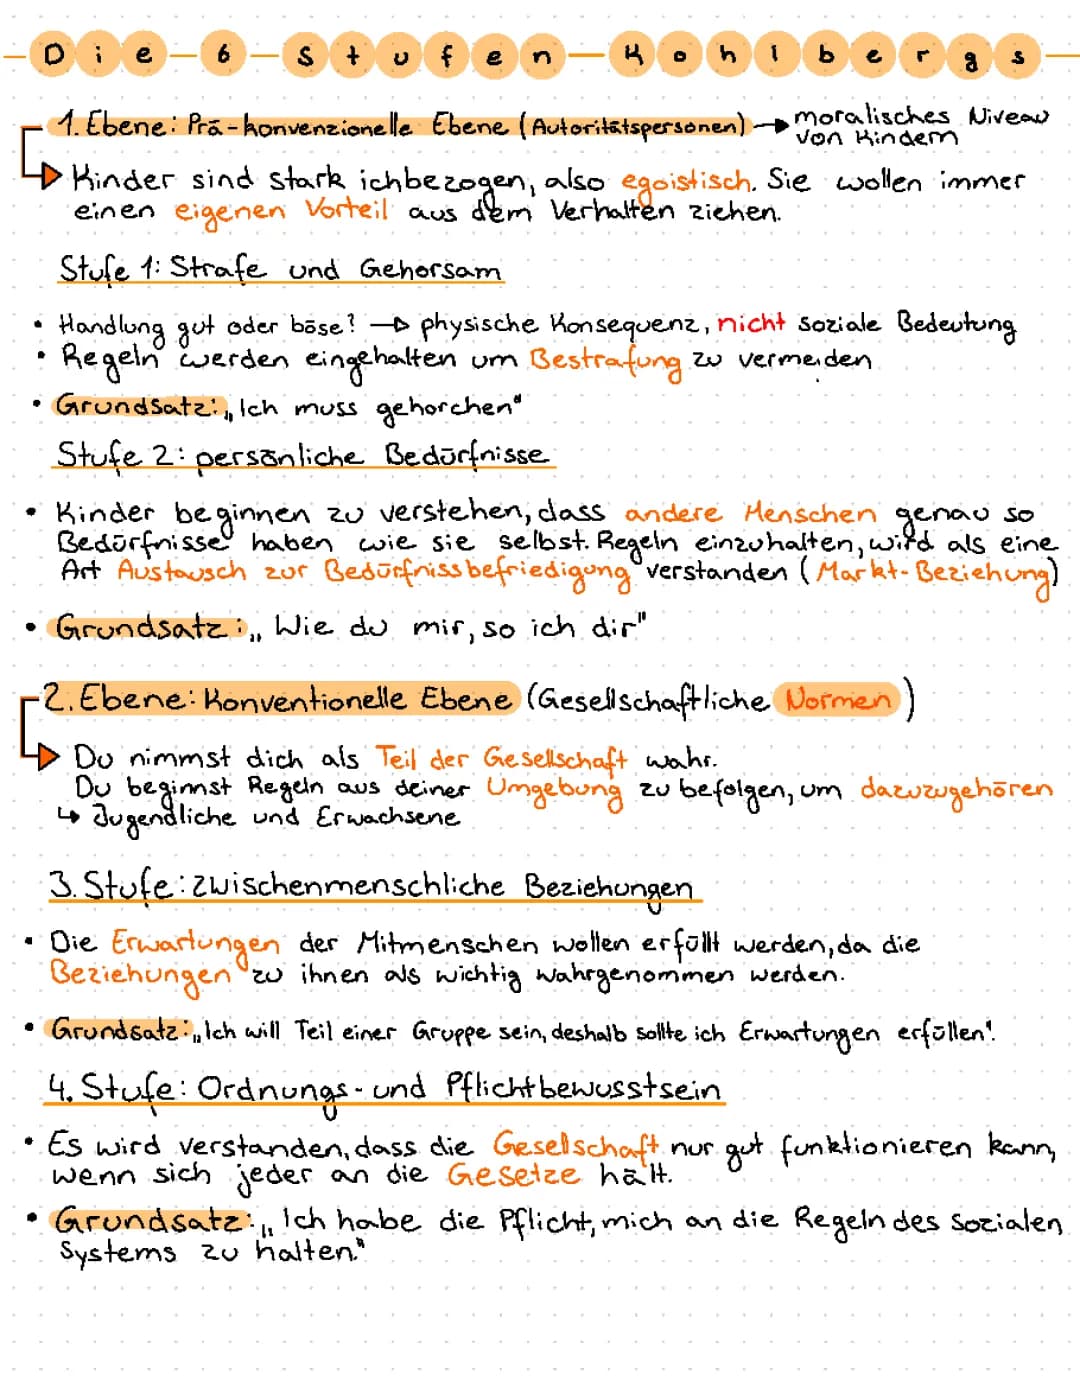 Die 6 Stufen Kohlbergs
1. Ebene: Prä-konvenzionelle Ebene (Autoritätspersonen) → moralisches Niveau
von Kindern
Kinder sind stark ichbezogen, also egoistisch. Sie wollen immer
einen eigenen Vorteil aus dem Verhalten ziehen.
Stufe 1: Strafe und Gehorsam
• Handlung gut oder böse? → physische Konsequenz, nicht soziale Bedeutung
• Regeln werden eingehalten um Bestrafung zu vermeiden
• Grundsatz: „Ich muss gehorchen"
Stufe 2: persönliche Bedürfnisse
• Kinder beginnen zu verstehen, dass andere Menschen genau so
Bedürfnisse haben wie sie selbst. Regeln einzuhalten, wird als eine
Art Austausch zur Bedürfnissbefriedigung verstanden (Markt-Beziehung)
• Grundsatz: „Wie du mir, so ich dir"
2. Ebene: Konventionelle Ebene (Gesellschaftliche Normen)
Du nimmst dich als Teil der Gesellschaft wahr.
Du beginnst Regeln aus deiner Umgebung zu befolgen, um dazuzugehören
↳ Jugendliche und Erwachsene
3. Stufe: zwischenmenschliche Beziehungen
• Die Erwartungen der Mitmenschen wollen erfüllt werden, da die
Beziehungen zu ihnen als wichtig wahrgenommen werden.
• Grundsatz: „Ich will Teil einer Gruppe sein, deshalb sollte ich Erwartungen erfüllen".
4. Stufe: Ordnungs- und Pflichtbewusstsein
• Es wird verstanden, dass die Gesellschaft nur gut funktionieren kann,
wenn sich jeder an die Gesetze hält.
• Grundsatz: „Ich habe die Pflicht, mich an die Regeln des sozialen
Systems zu halten."